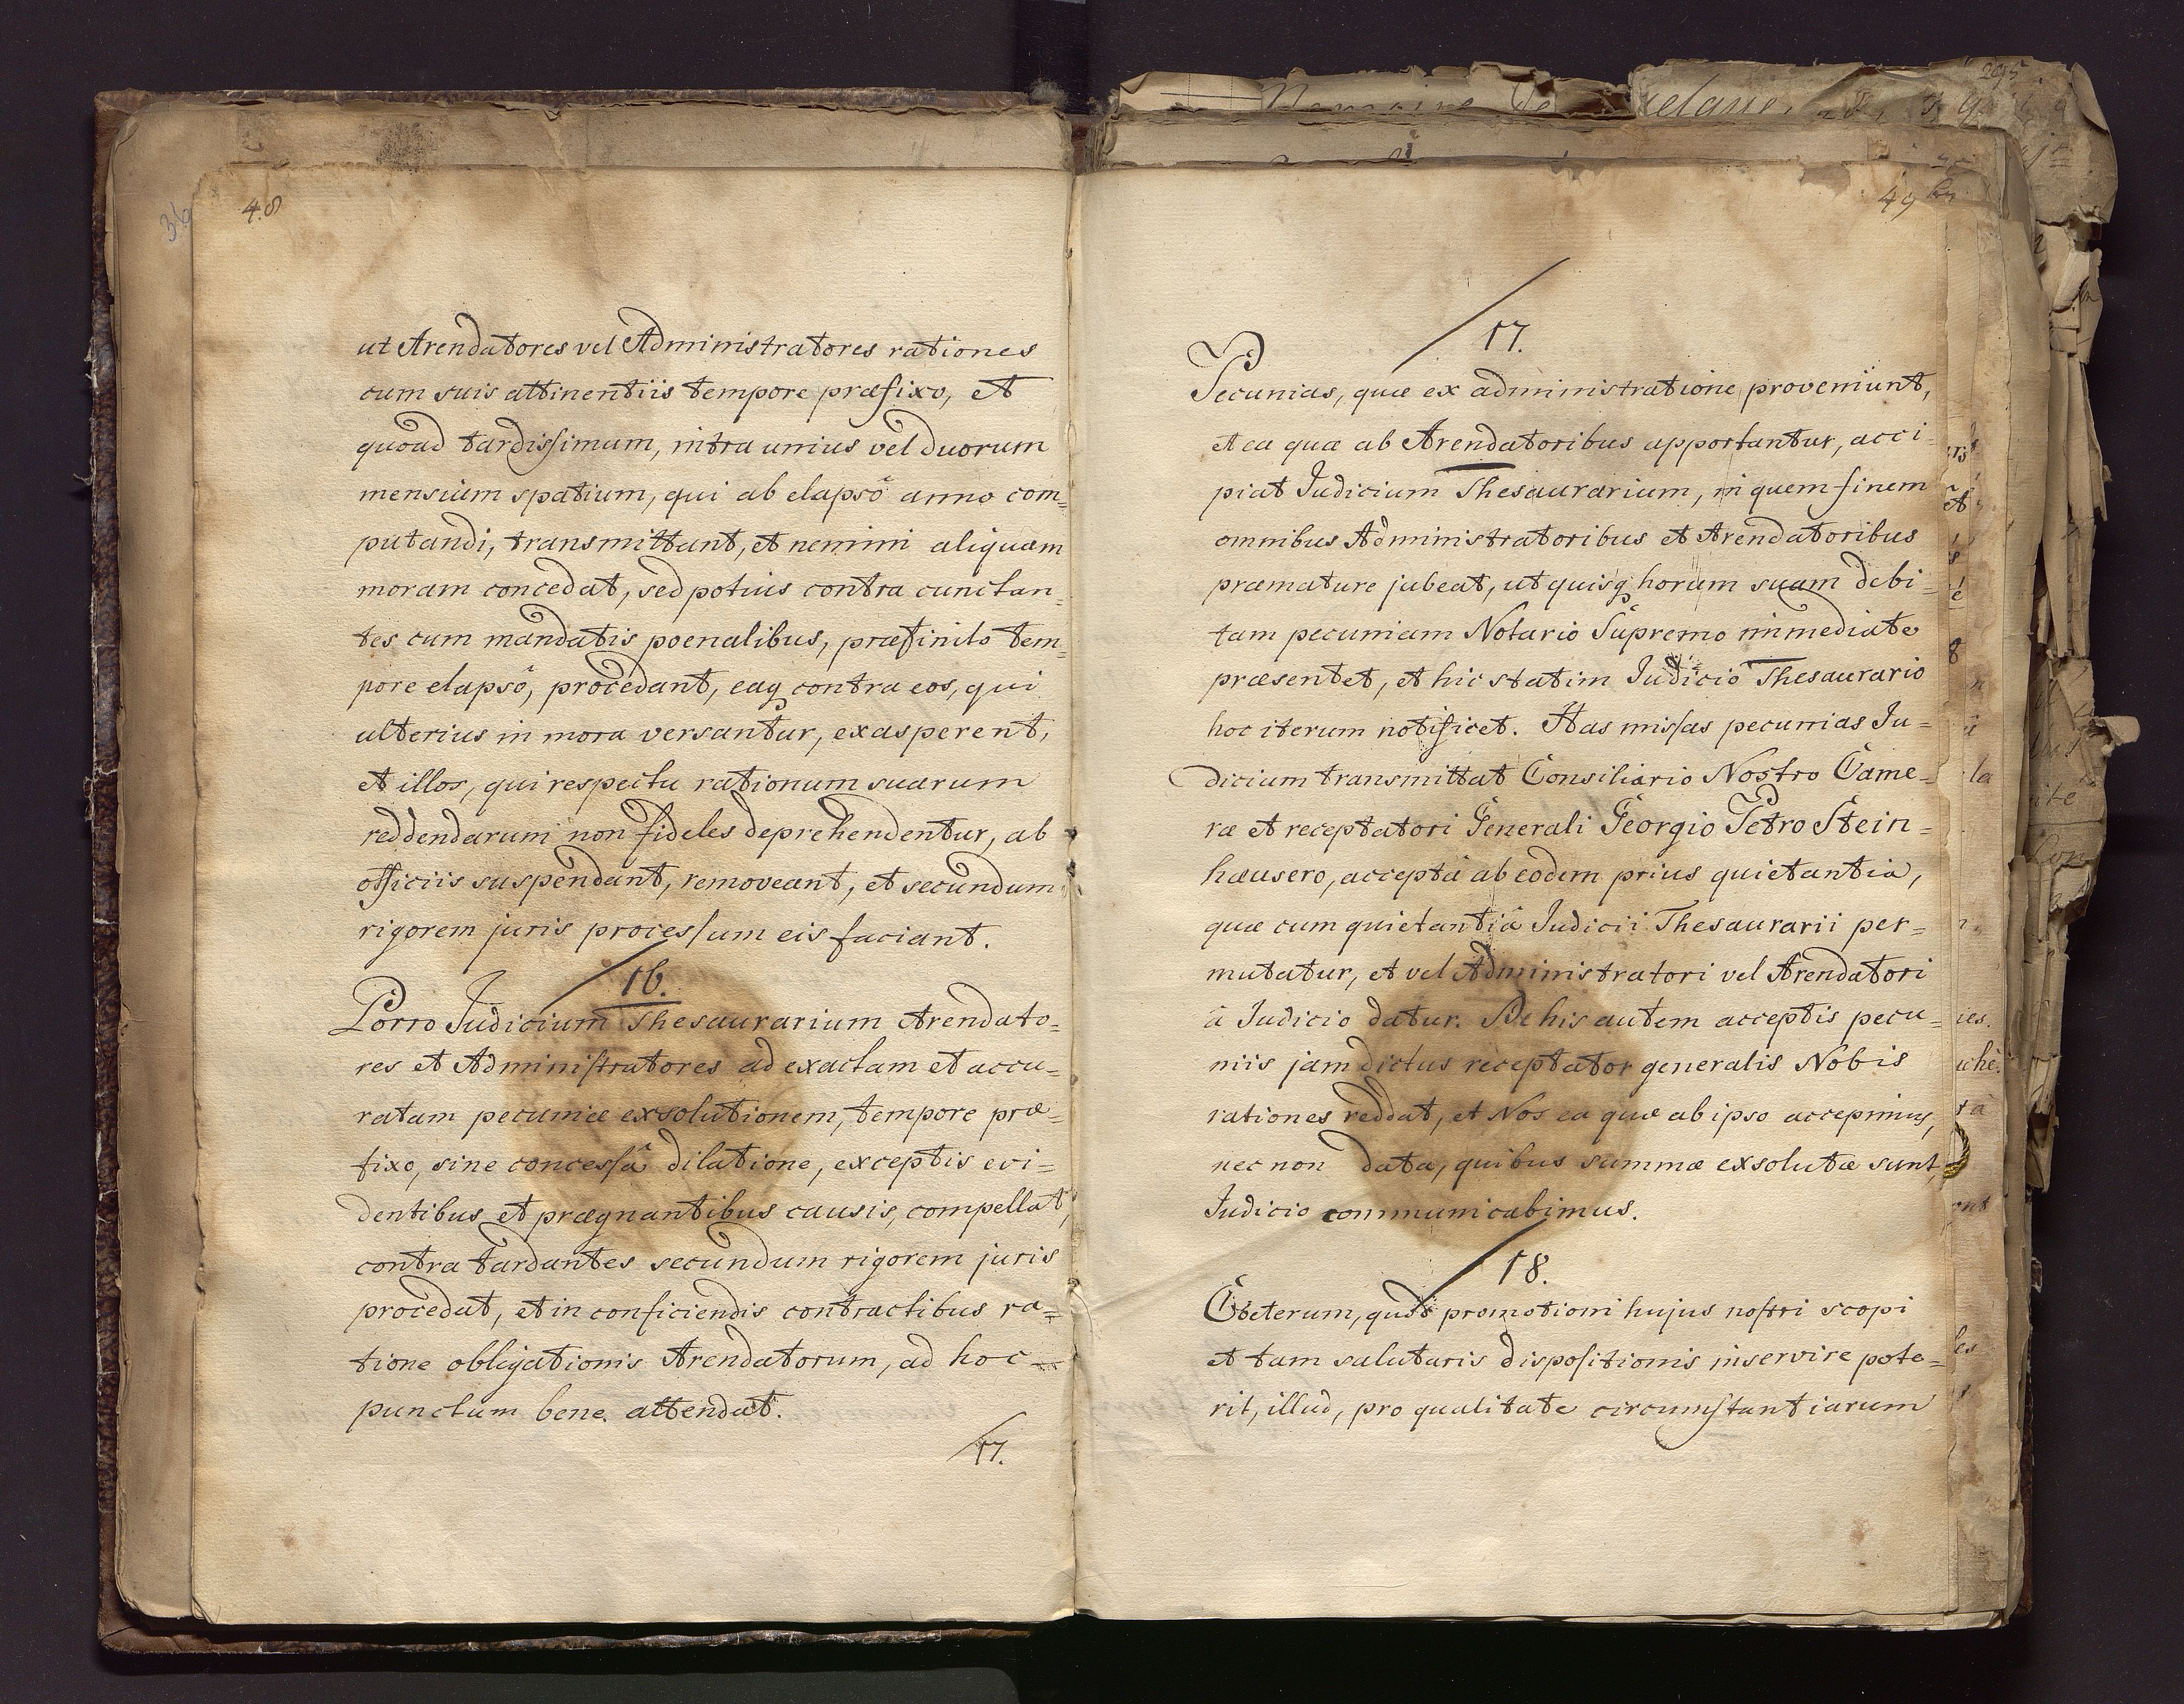 36
48
ut Arendatores vel Administratores rationes
cum suis attinentiis tempore præfixo, et
quoad tardissimum, intra unius vel duorum
mensium spatium, qui ab elapsô anno com=
putandi, transmittant, et nemini aliquam
moram concedat, sed potius contra cunctan=
tes cum mandatis poenalibus, præfinito tem=
pore elapsô, procedant, eaq contra eos, qui
ulterius in mora versantur, exasperent,
et illos, qui respectu rationum suarum
reddendarum non fideles deprehendentur, ab
officiis suspendant, removeant, et secundum
rigorem juris processum eis faciant.
16.
Porro Judicium Thesaurarium Arendato=
res et Administratores ad exactam et accu=
ratam pecuniæ exsolutionem, tempore præ=
fixo, sine concessâ dilatione, exceptis evi=
dentibus et prægnantibus causis, compellat,
contra tardantes secundum rigorem juris
procedat, et in conficiendis contractibus ra=
tione obligationis Arendatorum, ad hoc
punctum bene attendat.
17.
49
17.
Pecunias, quæ ex administratione proveniunt,
et ea quæ ab Arendatoribus apportantur, acci=
piat Judicium Thesaurarium, in quem finem
omnibus Administratoribus et Arendatoribus
præmature jubeat, ut quisq horum suam debi=
tam pecuniam Notario Supremo immediate
præsentet, et hic statim Judicio Thesaurario
hoc iterum notificet. Has missas pecunias Ju=
dicium transmittat Consiliario Nostro Came=
ræ et receptatori Generali Georgio Petro Stein=
hæusero, acceptâ ab eodem prius quietantia,
quæ cum quietantiâ Judicii Thesaurarii per=
mutatur, et vel Administratori vel Arendatori
â Judicio datur. De his autem acceptis pecu=
niis jam dictus receptator generalis Nobis
rationes reddat, et Nos ea quæ ab ipso accepimus,
nec non data, quibus summæ exsolutæ sunt,
Judicio communicabimus.
18.
Cæterum, quod promotioni hujus nostri scopi
et tam salutaris dispositionis inservire pote=
rit, illud, pro qualitate circumstantiarum